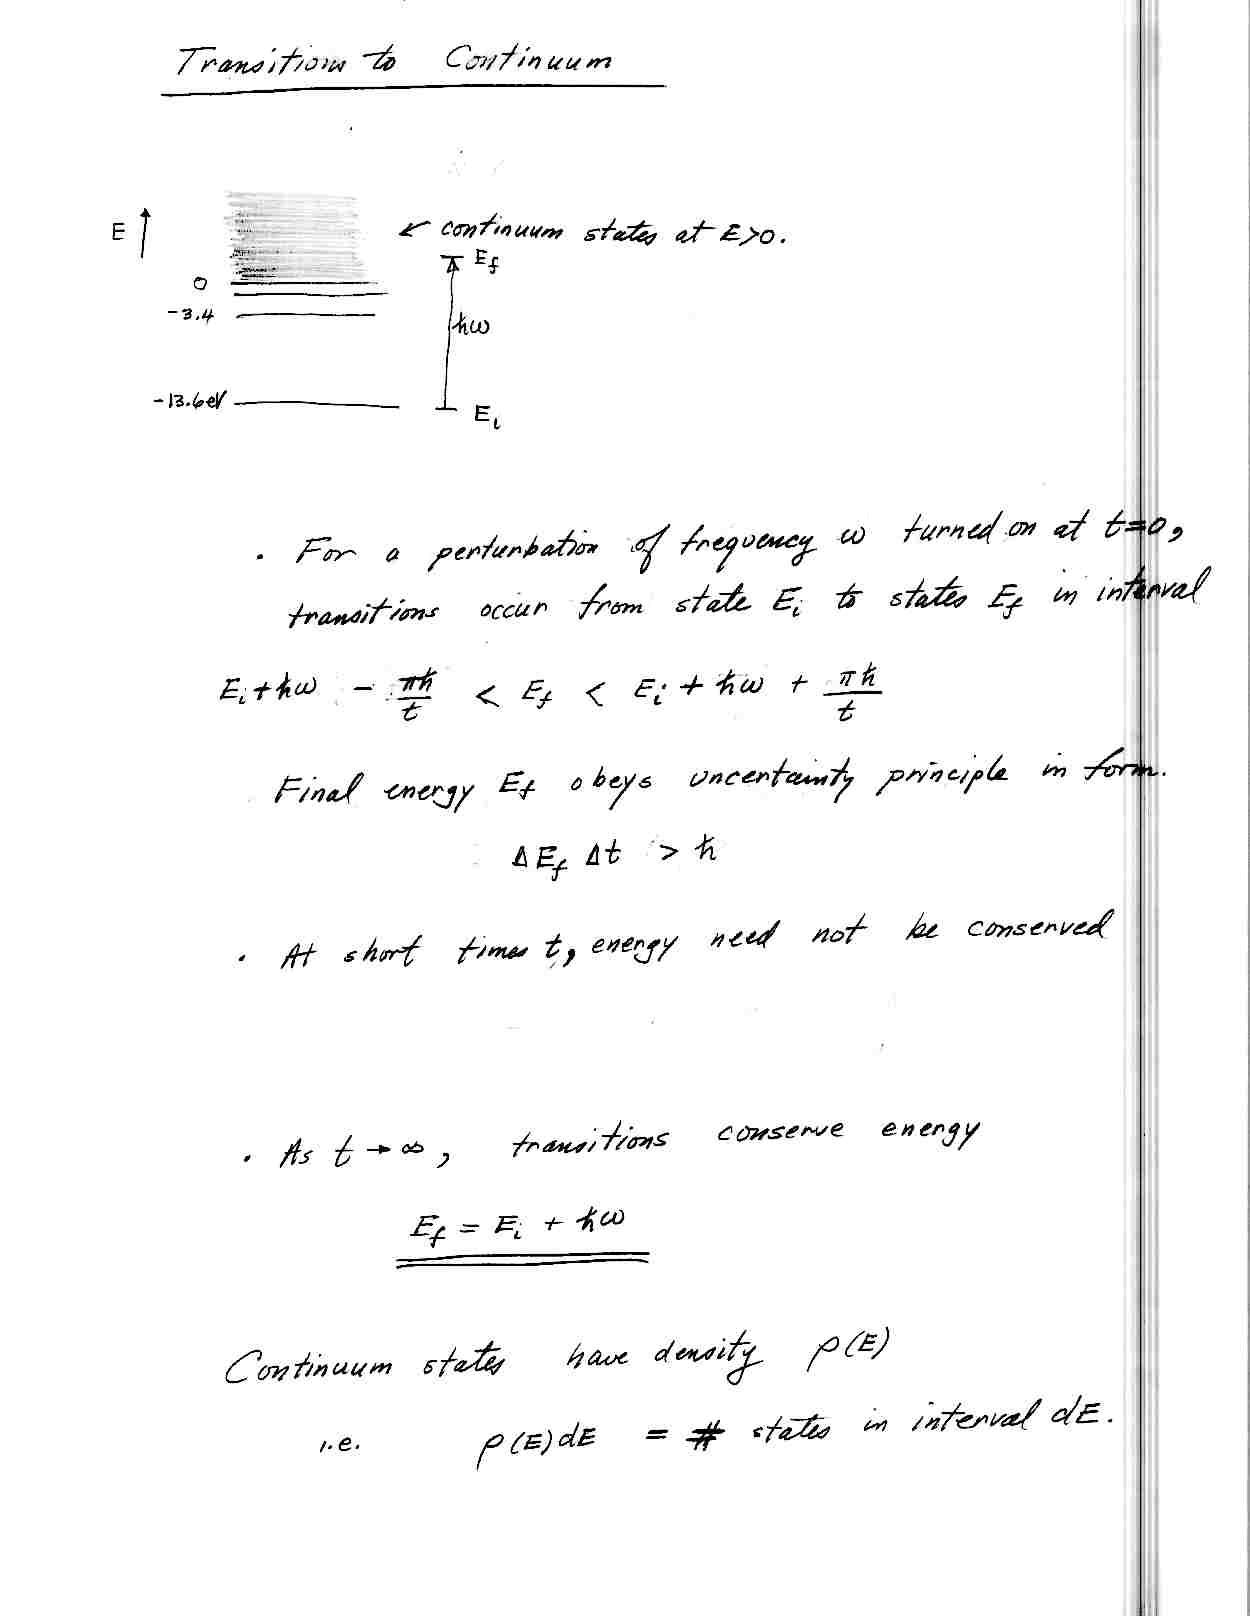 Transitions to Continuum
E
← continuum states at E>0.
E_f
0
-3.4
ħω
-13.6eV
E_i
· For a perturbation of frequency ω turned on at t=0,
transitions occur from state E_i to states E_f in interval
E_i+ħω - πħ/t < E_f < E_i + ħω + πħ/t
Final energy E_f obeys uncertainty principle in form.
ΔE_f Δt > ħ
· At short times t, energy need not be conserved
· As t → ∞, transitions conserve energy
E_f = E_i + ħω
Continuum states have density ρ(E)
i.e. ρ(E)dE = # states in interval dE.